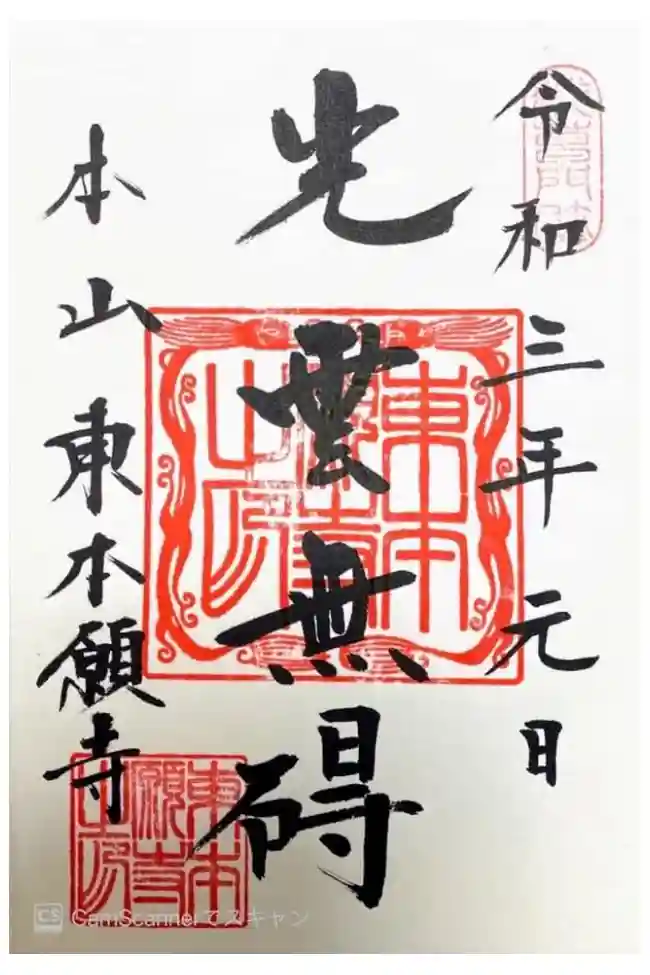 令和三年元日
光雲無碍
本山東本願寺
東本願寺之印
東本願寺之印
CS CamScannerでスキャン